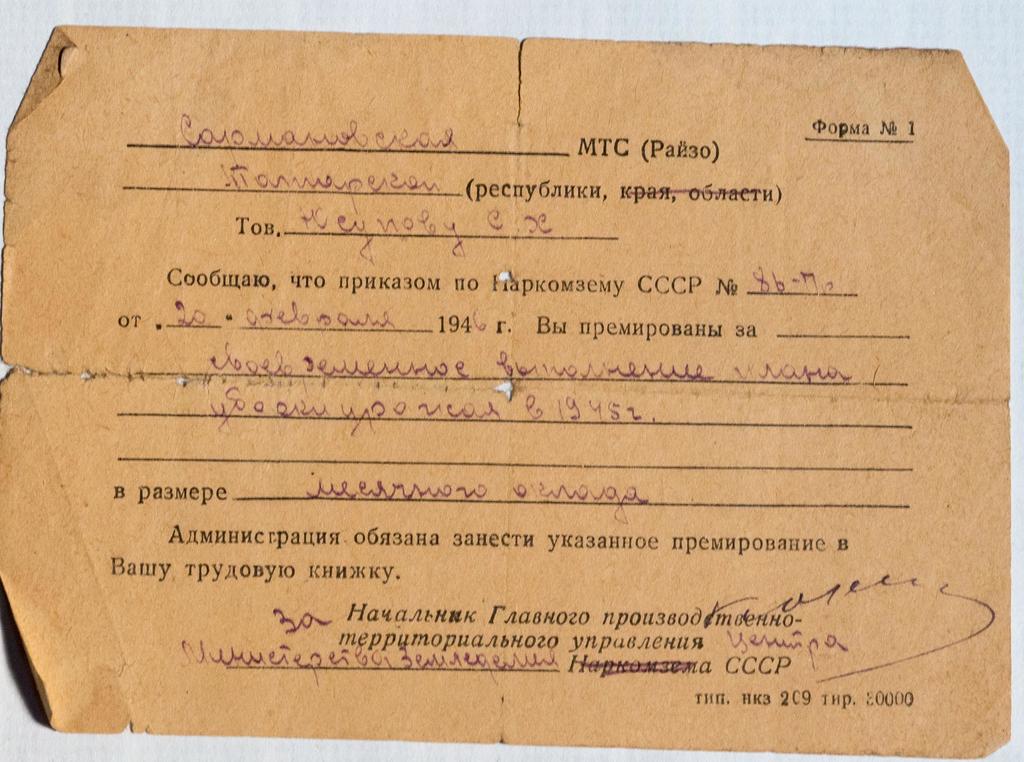 Форма № 1
Сармановская МТС (Райзо)
Татарской (республики, края, области)
Тов. Юсупову С. Х
Сообщаю, что приказом по Наркомзему СССР №
от „20" февраля 1946 г. Вы премированы за
своевременное выполнение плана
уборки урожая в 1945 г.
в размере месячного оклада
Администрация обязана занести указанное премирование в
Вашу трудовую книжку.
За Начальник Главного производственно-
территориального управления Центра
Министерства Земледелия Наркомзема СССР
тип. нкз 209 тир. 0000